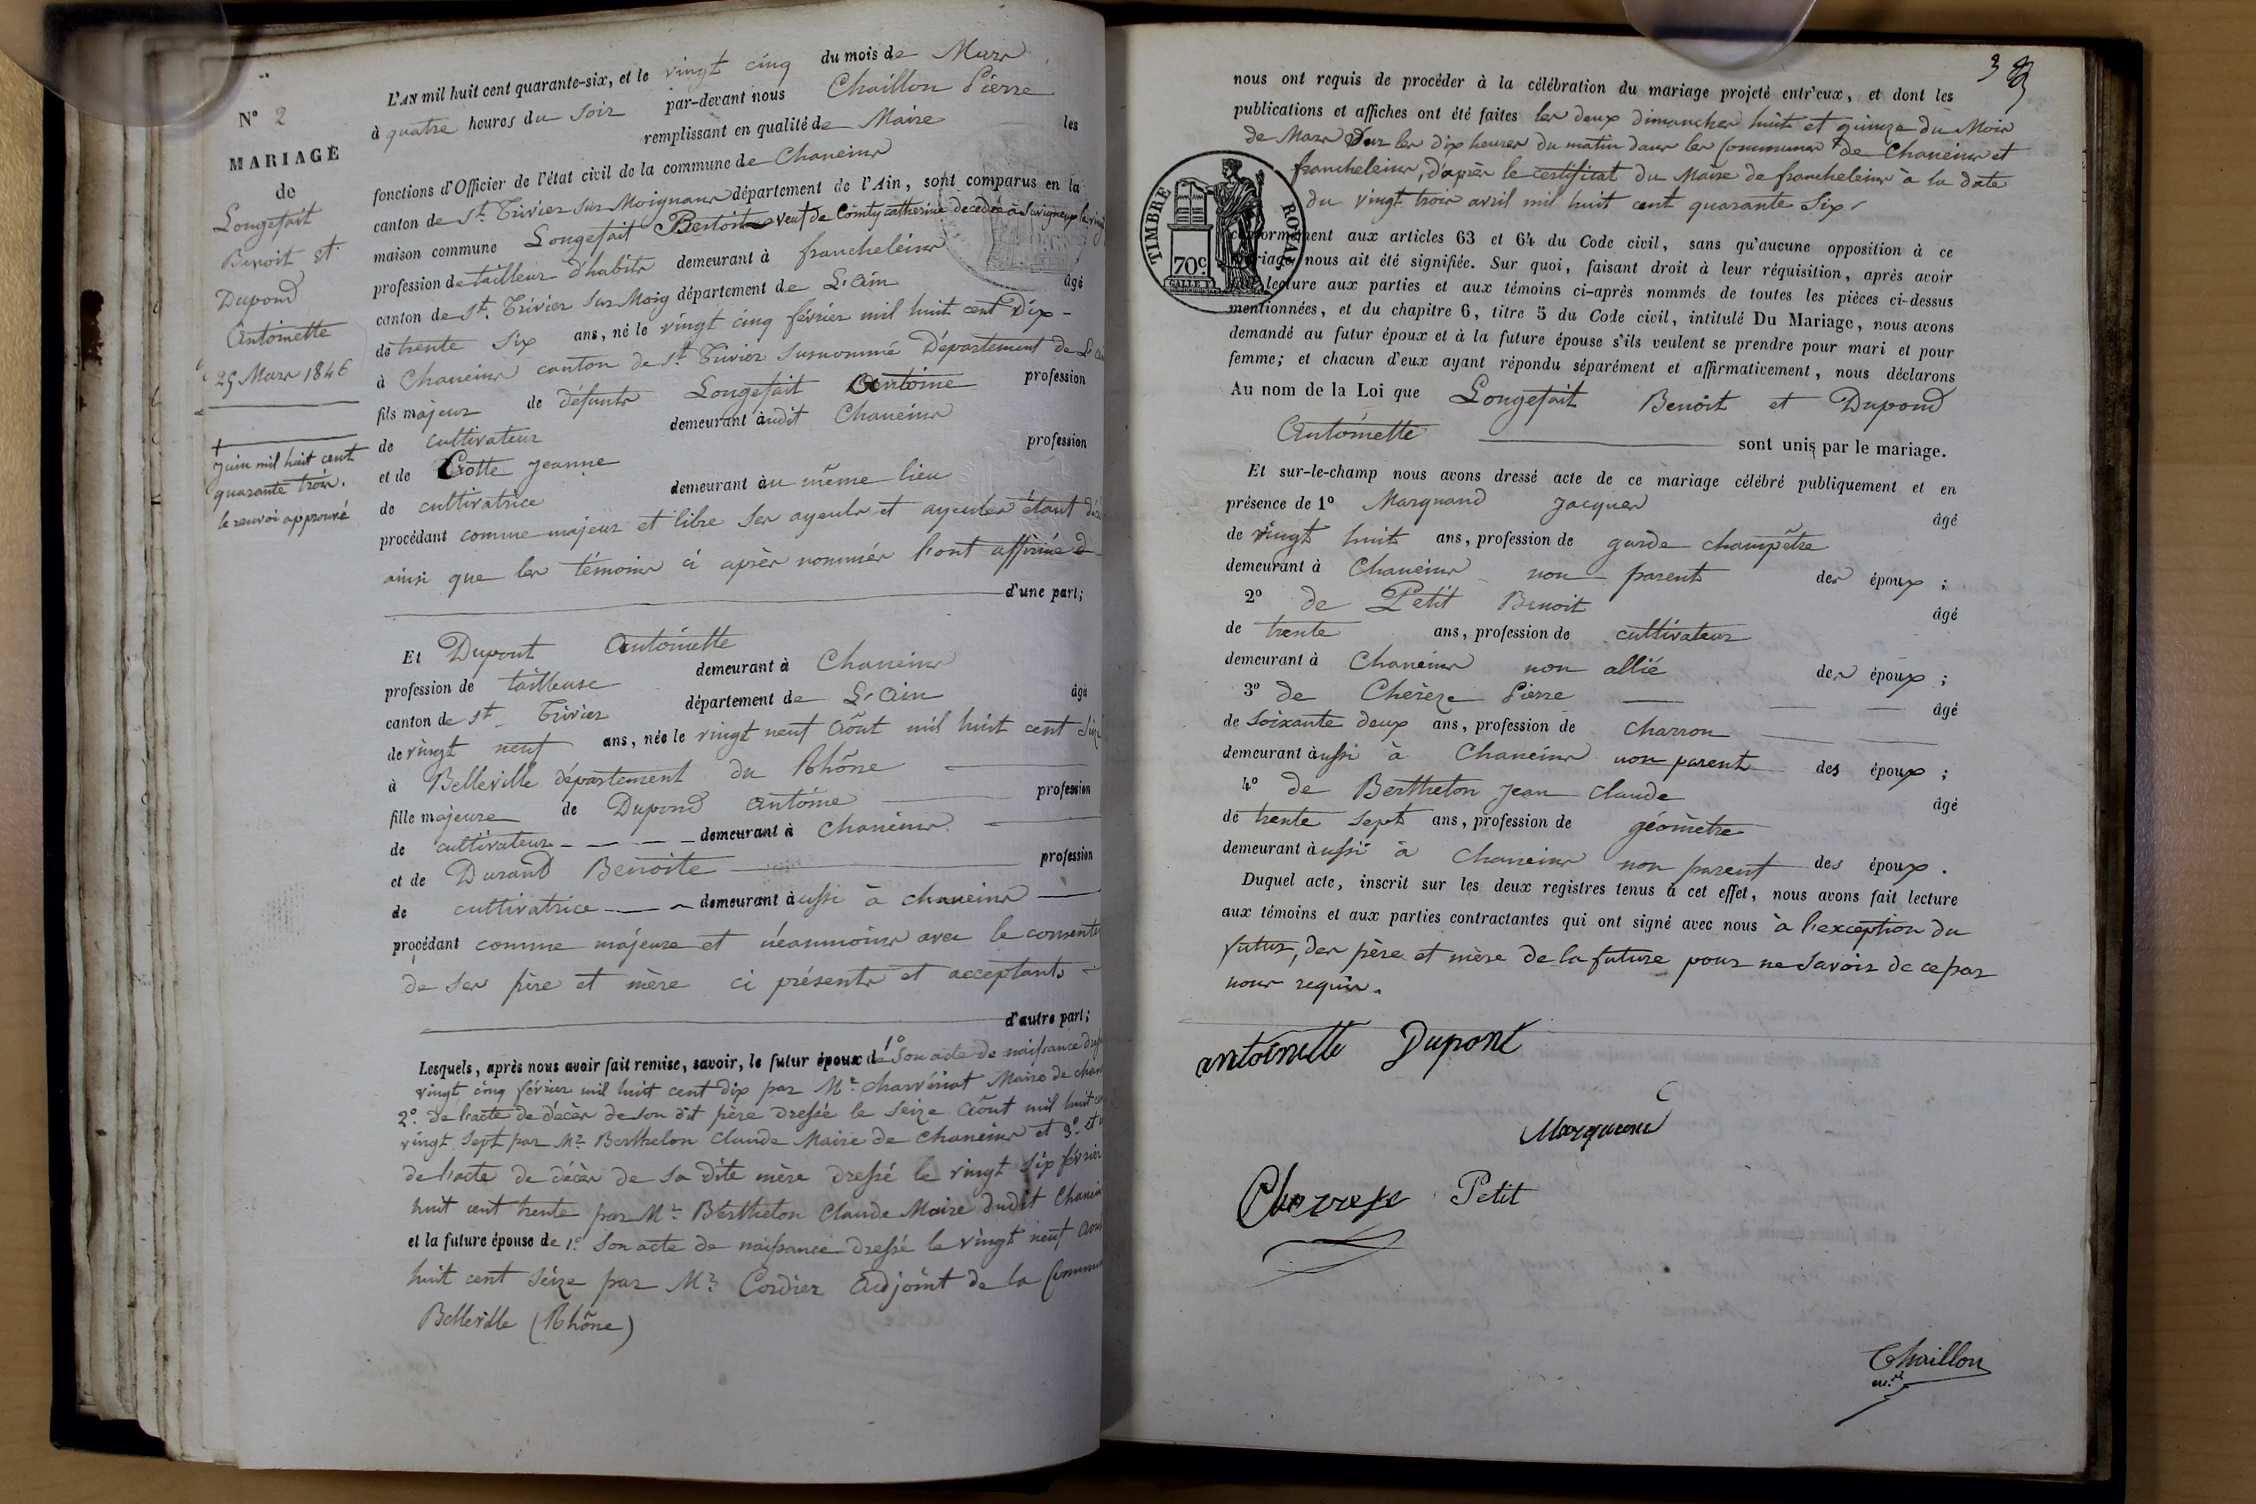 N° 2
MARIAGE
de
Longefait
Benoit et
Dupond
Antoinette
25 Mars 1846
Juin mil huit cent
quarante trois.
le renvoi approuvé
L'AN mil huit cent quarante-six, et le vingt cinq du mois de Mars
à quatre heures du soir par-devant nous Chaillon Pierre
remplissant en qualité de Maire les
fonctions d'Officier de l'état civil de la commune de Chaneins
canton de St. Trivier sur Moignans département de l'Ain, sont comparus en la
maison commune Longefait Benoit veuf de Comty catherine decedée à Savigneux le
profession de tailleur d'habits demeurant à francheleins
canton de St. Trivier sur Moig département de L'ain âgé
de trente six ans, né le vingt cinq février mil huit cent dix -
à Chaneins canton de St Trivier surnommé Département de L'
fils majeur de défunts Longefait Antoine profession
de cultivateur demeurant audit Chaneins
et de Crotte Jeanne profession
de cultivatrice demeurant au même lieu
procédant comme majeur et libre ses ayeuls et ayeules étant
ainsi que les témoins ci après nommés l'ont affirmé
d'une part;
Et Dupont Antoinette
profession de tailleuse demeurant à Chaneins
canton de St Trivier département de L'Ain âgé
de vingt neuf ans, née le vingt neuf Août mil huit cent
à Belleville département du Rhône
fille majeure de Dupond antoine profession
de cultivateur demeurant à Chaneins
et de Durand Benoite profession
de cultivatrice demeurant aussi à chaneins
procédant comme majeure et néanmoins avec le
de ses père et mère ci présents et acceptants
d'autre part;
Lesquels, après nous avoir fait remise, savoir, le futur époux de 1° Son acte de naissance
vingt cinq février mil huit cent dix par Mr. Charvériat Maire de
2°. De l'acte de décès de son dit père Dressé le seize Août mil huit
vingt sept par Mr Berthelon Claude Maire de Chaneins et 3°.
de l'acte de décès de sa dite mère dressé le vingt six février
huit cent trente par Mr Berthelon Claude Maire dudit
et la future épouse de 1° Son acte de naissance dressé le vingt neuf
huit cent seize par Mr Cordier Adjoint de la
Belleville (Rhône)
3
nous ont requis de procéder à la célébration du mariage projeté entr'eux, et dont les
publications et affiches ont été faites les deux dimanches huit et quinze du Mois
de Mars sur les dix heures du matin dans les communes de Chaneins et
francheleins, d'après le certificat du Maire de francheleins à la date
du vingt trois avril mil huit cent quarante six
TIMBRE ROYAL
70c
conformément aux articles 63 et 64 du Code civil, sans qu'aucune opposition à ce
mariage nous ait été signifiée. Sur quoi, faisant droit à leur réquisition, après avoir
lecture aux parties et aux témoins ci-après nommés de toutes les pièces ci-dessus
mentionnées, et du chapitre 6, titre 5 du Code civil, intitulé Du Mariage, nous avons
demandé au futur époux et à la future épouse s'ils veulent se prendre pour mari et pour
femme; et chacun d'eux ayant répondu séparément et affirmativement, nous déclarons
Au nom de la Loi que Longefait Benoit et Dupond
Antoinette sont unis par le mariage.
Et sur-le-champ nous avons dressé acte de ce mariage célébré publiquement et en
présence de 1° Marquand Jacques âgé
de vingt huit ans, profession de garde champêtre
demeurant à Chaneins non parent des époux ;
2° de Petit Benoit âgé
de trente ans, profession de cultivateur
demeurant à Chaneins non allié des époux ;
3° de Cherèze Pierre âgé
de soixante deux ans, profession de charron
demeurant aussi à Chaneins non parent des époux ;
4° de Berthelon Jean Claude âgé
de trente sept ans, profession de géomètre
demeurant aussi à Chaneins non parent des époux.
Duquel acte, inscrit sur les deux registres tenus à cet effet, nous avons fait lecture
aux témoins et aux parties contractantes qui ont signé avec nous à l'exception du
futur, des père et mère de la future pour ne savoir de ce par
nous requis.
antoinette Dupont
Marquand
Cherrese Petit
Chaillon